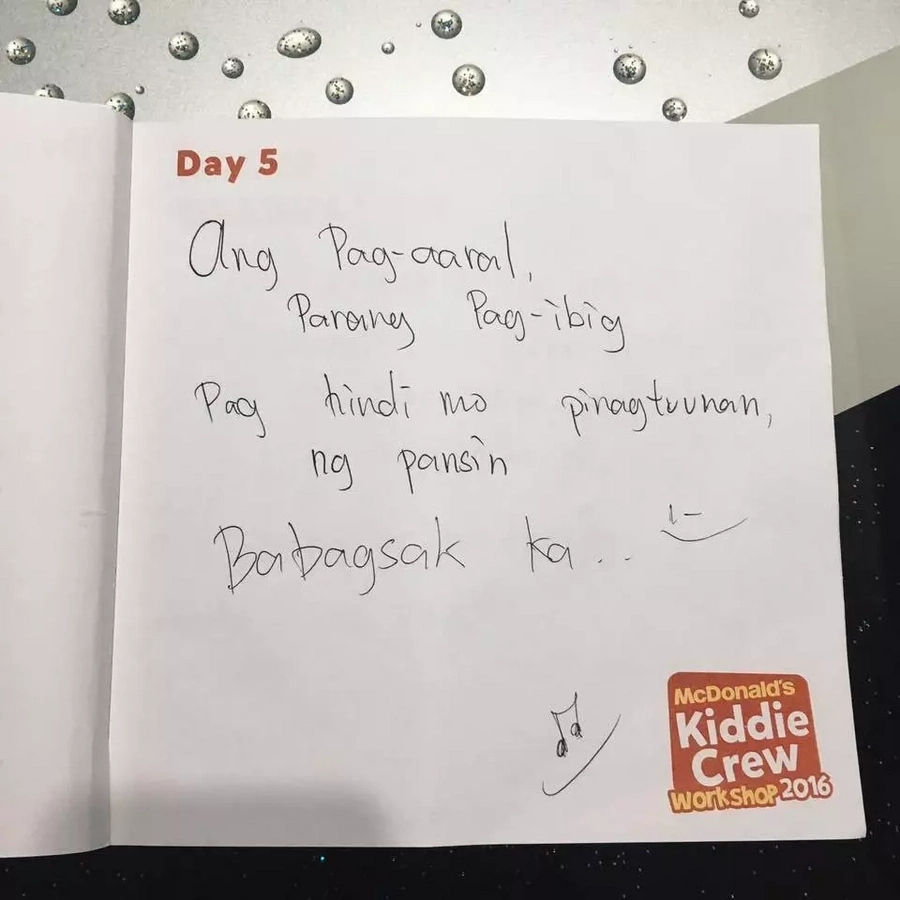 Day 5
Ang Pag-aaral,
Parang Pag-ibig
Pag hindi mo pinagtuunan,
ng pansin
Babagsak ka...
McDonald's
Kiddie
Crew
Workshop 2016